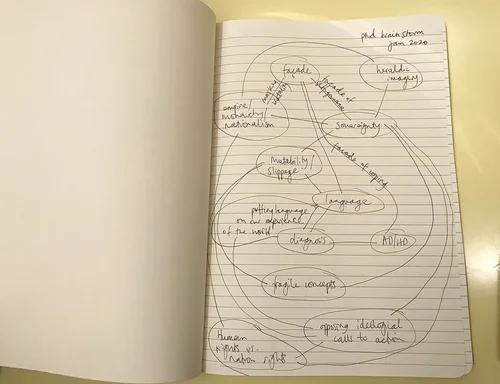 phd brainstorm
jan 2020
façade
heraldic
imagery
empire/
monarchy/
nationalism
façade of
sovereignty
mutability/
slippage
facade of coping
language
putting language
on our experience
of the world
diagnosis
AD/HD
fragile concepts
opposing ideological
calls to action
Human
rights vs.
nation rights